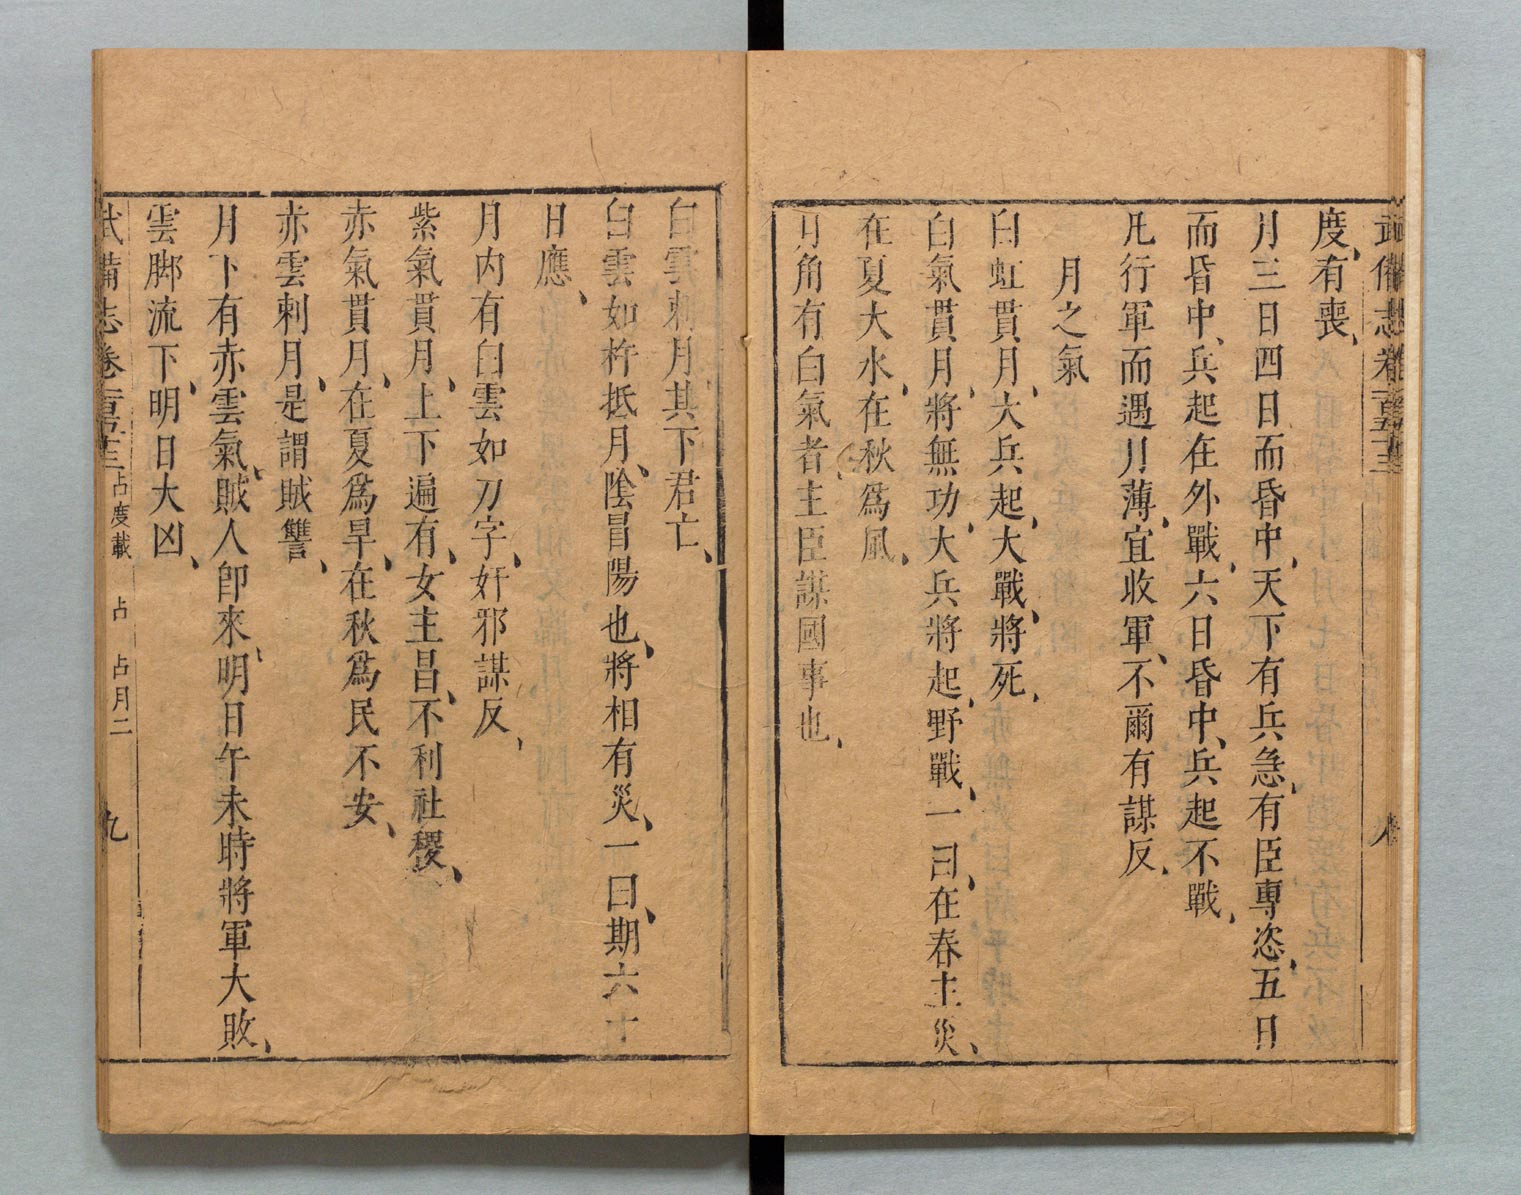 武備志卷一百五十三
度有喪
月三日四日而昏中天下有兵急有臣專恣五日
而昏中兵起在外戰六日昏中兵起不戰
凡行軍而遇月薄宜收軍不爾有謀反
月之氣
白虹貫月大兵起大戰將死
白氣貫月將無功大兵將起野戰一曰在春主災
在夏大水在秋為風
月角有白氣者主臣謀國事也
白雲刺月其下君亡
白雲如杵抵月陰冒陽也將相有災一曰期六十
日應
月内有白雲如刀字奸邪謀反
紫氣貫月上下遍有女主昌不利社稷
赤氣貫月在夏為旱在秋為民不安
赤雲刺月是謂賊讐
月下有赤雲氣賊人卽來明日午未時將軍大敗
雲脚流下明日大凶
武備志卷一百五十三 占度載 占 占月二 九